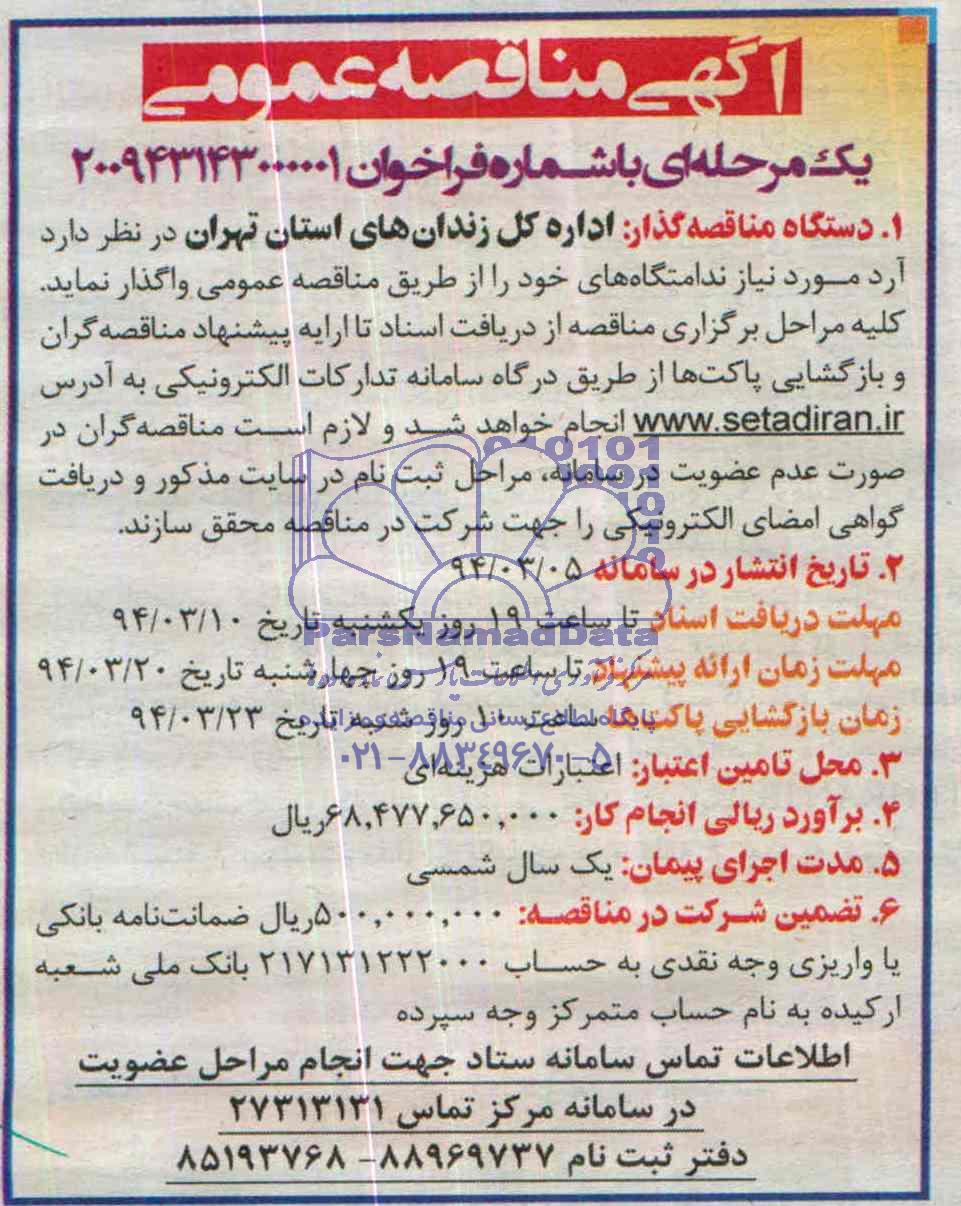 آگهی مناقصه عمومی
یک مرحله‌ای با شماره فراخوان ۲۰۰۹۴۳۱۴۳۰۰۰۰۰۱
۱. دستگاه مناقصه‌گذار: اداره کل زندان‌های استان تهران در نظر دارد
آرد مورد نیاز ندامتگاه‌های خود را از طریق مناقصه عمومی واگذار نماید.
کلیه مراحل برگزاری مناقصه از دریافت اسناد تا ارایه پیشنهاد مناقصه‌گران
و بازگشایی پاکت‌ها از طریق درگاه سامانه تدارکات الکترونیکی به آدرس
www.setadiran.ir انجام خواهد شد و لازم است مناقصه‌گران در
صورت عدم عضویت در سامانه، مراحل ثبت نام در سایت مذکور و دریافت
گواهی امضای الکترونیکی را جهت شرکت در مناقصه محقق سازند.
۲. تاریخ انتشار در سامانه ۹۴/۰۳/۰۵
مهلت دریافت اسناد تا ساعت ۱۹ روز یکشنبه تاریخ ۹۴/۰۳/۱۰
ParsNamadData
مهلت زمان ارائه پیشنهاد تا ساعت ۱۹ روز چهارشنبه تاریخ ۹۴/۰۳/۲۰
زمان بازگشایی پاکت‌ها ساعت ۱۰ روز شنبه تاریخ ۹۴/۰۳/۲۳
پایگاه اطلاع رسانی مناقصه و مزایده
۰۲۱-۸۸۳۴۹۶۷۰-۵
۳. محل تامین اعتبار: اعتبارات هزینه‌ای
۴. برآورد ریالی انجام کار: ۶۸,۴۷۷,۶۵۰,۰۰۰ریال
۵. مدت اجرای پیمان: یک سال شمسی
۶. تضمین شرکت در مناقصه: ۵۰۰,۰۰۰,۰۰۰ریال ضمانت‌نامه بانکی
یا واریزی وجه نقدی به حساب ۲۱۷۱۳۱۲۲۲۰۰۰ بانک ملی شعبه
ارکیده به نام حساب متمرکز وجه سپرده
اطلاعات تماس سامانه ستاد جهت انجام مراحل عضویت
در سامانه مرکز تماس ۲۷۳۱۳۱۳۱
دفتر ثبت نام ۸۸۹۶۹۷۳۷- ۸۵۱۹۳۷۶۸